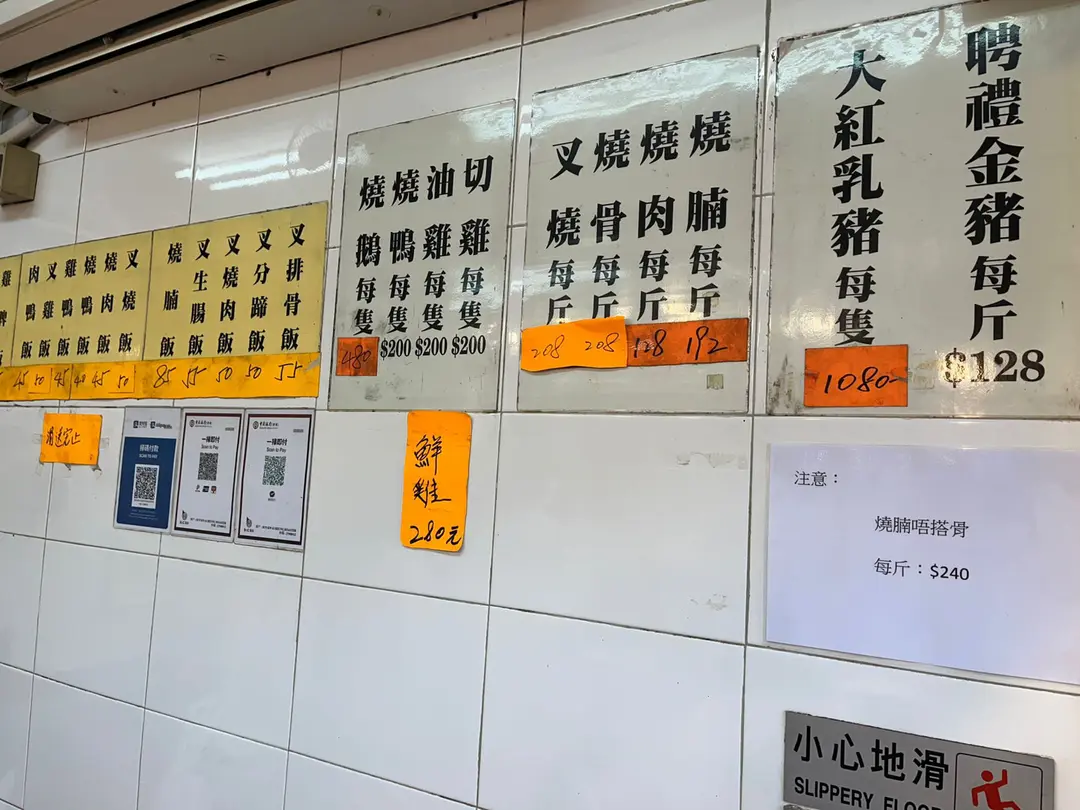 聘禮金豬每斤
$128
大紅乳豬每隻
1080-
燒腩每斤
192
燒肉每斤
128
燒骨每斤
208
叉燒每斤
208
切雞每隻
$200
油雞每隻
$200
燒鴨每隻
$200
燒鵝每隻
480
叉排骨飯
55
叉分蹄飯
50
叉燒肉飯
50
叉生腸飯
55
燒腩飯
85
叉燒飯
50
燒肉飯
45
燒鴨飯
40
雞鴨飯
45
叉鴨飯
50
肉鴨飯
45
雞
飯
鮮雞
280元
一掃即付
Scan to Pay
一掃即付
Scan to Pay
掃碼付款
注意：
燒腩唔搭骨
每斤：$240
小心地滑
SLIPPERY FLOOR